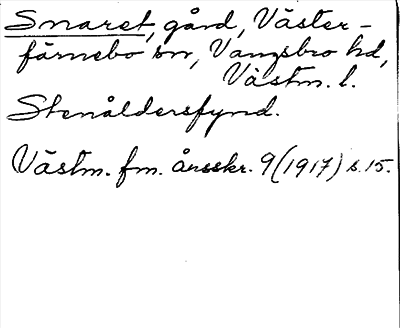 Snaret, gård, Väster-
färnebo sn, Vangsbro hd,
Västm. l.
Stenåldersfynd.
Västm. fm. årsskr. 9 (1917) s. 15.